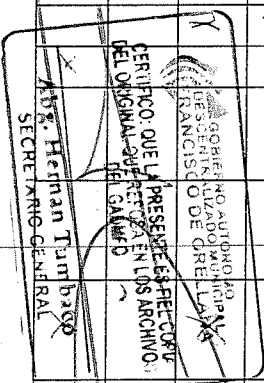 GOBIERNO AUTONOMO
DESCENTRALIZADO MUNICIPAL
FRANCISCO DE ORELLANA
CERTIFICO: QUE LA PRESENTE ES FIEL COPIA
DEL ORIGINAL QUE REPOSA EN LOS ARCHIVO
DEL GADMFO
Abg. Herman Tumbaco
SECRETARIO GENERAL